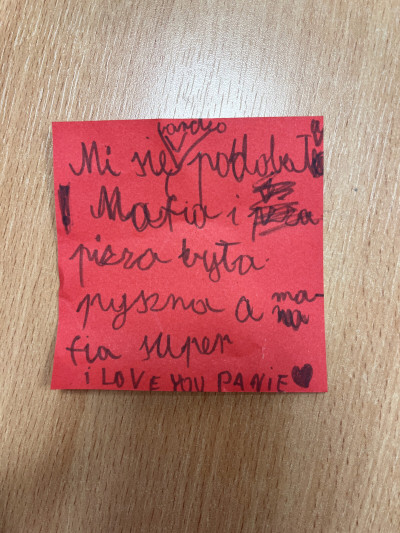 bardzo
Mi się podobała
Mafia i
pizza była
pyszna a ma-
fia super
i LOVE YOU PANIE